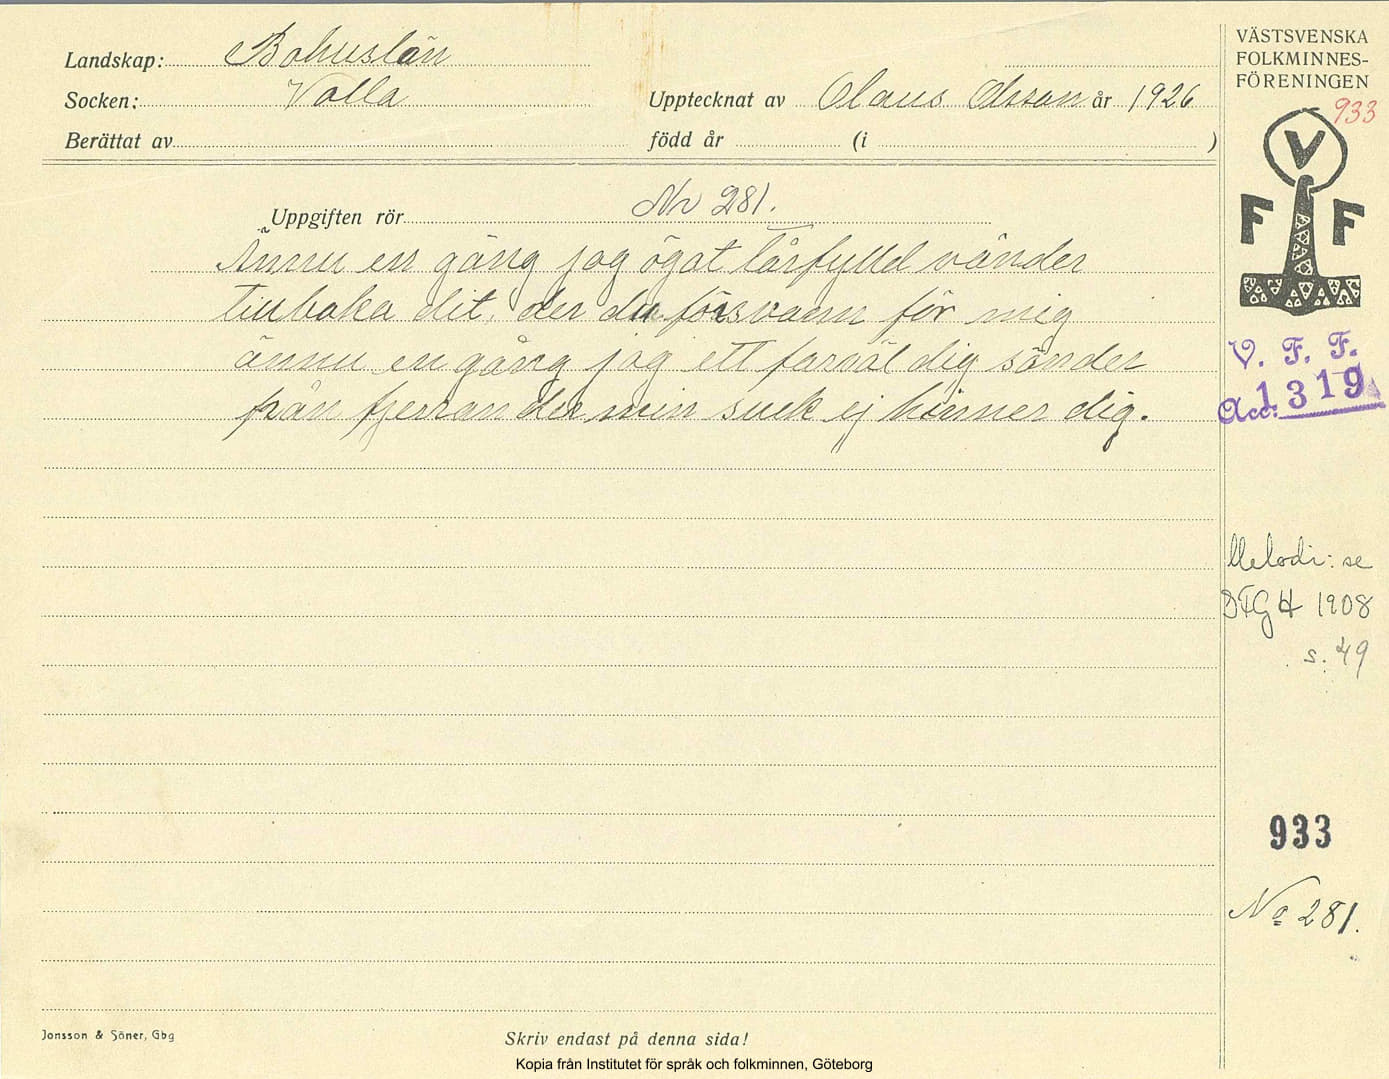 Landskap: Bohuslän
Socken: Valla
Upptecknat av Olaus Olsson år 1926
Berättat av
född år (i )
VÄSTSVENSKA
FOLKMINNES-
FÖRENINGEN
933
V
F F
V. F. F.
Acc: 1319
Uppgiften rör Nr 281.
Ännu en gång jag ögat tårfylld vänder
tillbaka dit, der du försvann för mig
ännu en gång jag ett farväl dig sänder
från fjerran der min suck ej hinner dig.
Melodi: se
DFGH 1908
s. 49
933
No 281.
Jonsson & Söner, Gbg
Skriv endast på denna sida!
Kopia från Institutet för språk och folkminnen, Göteborg